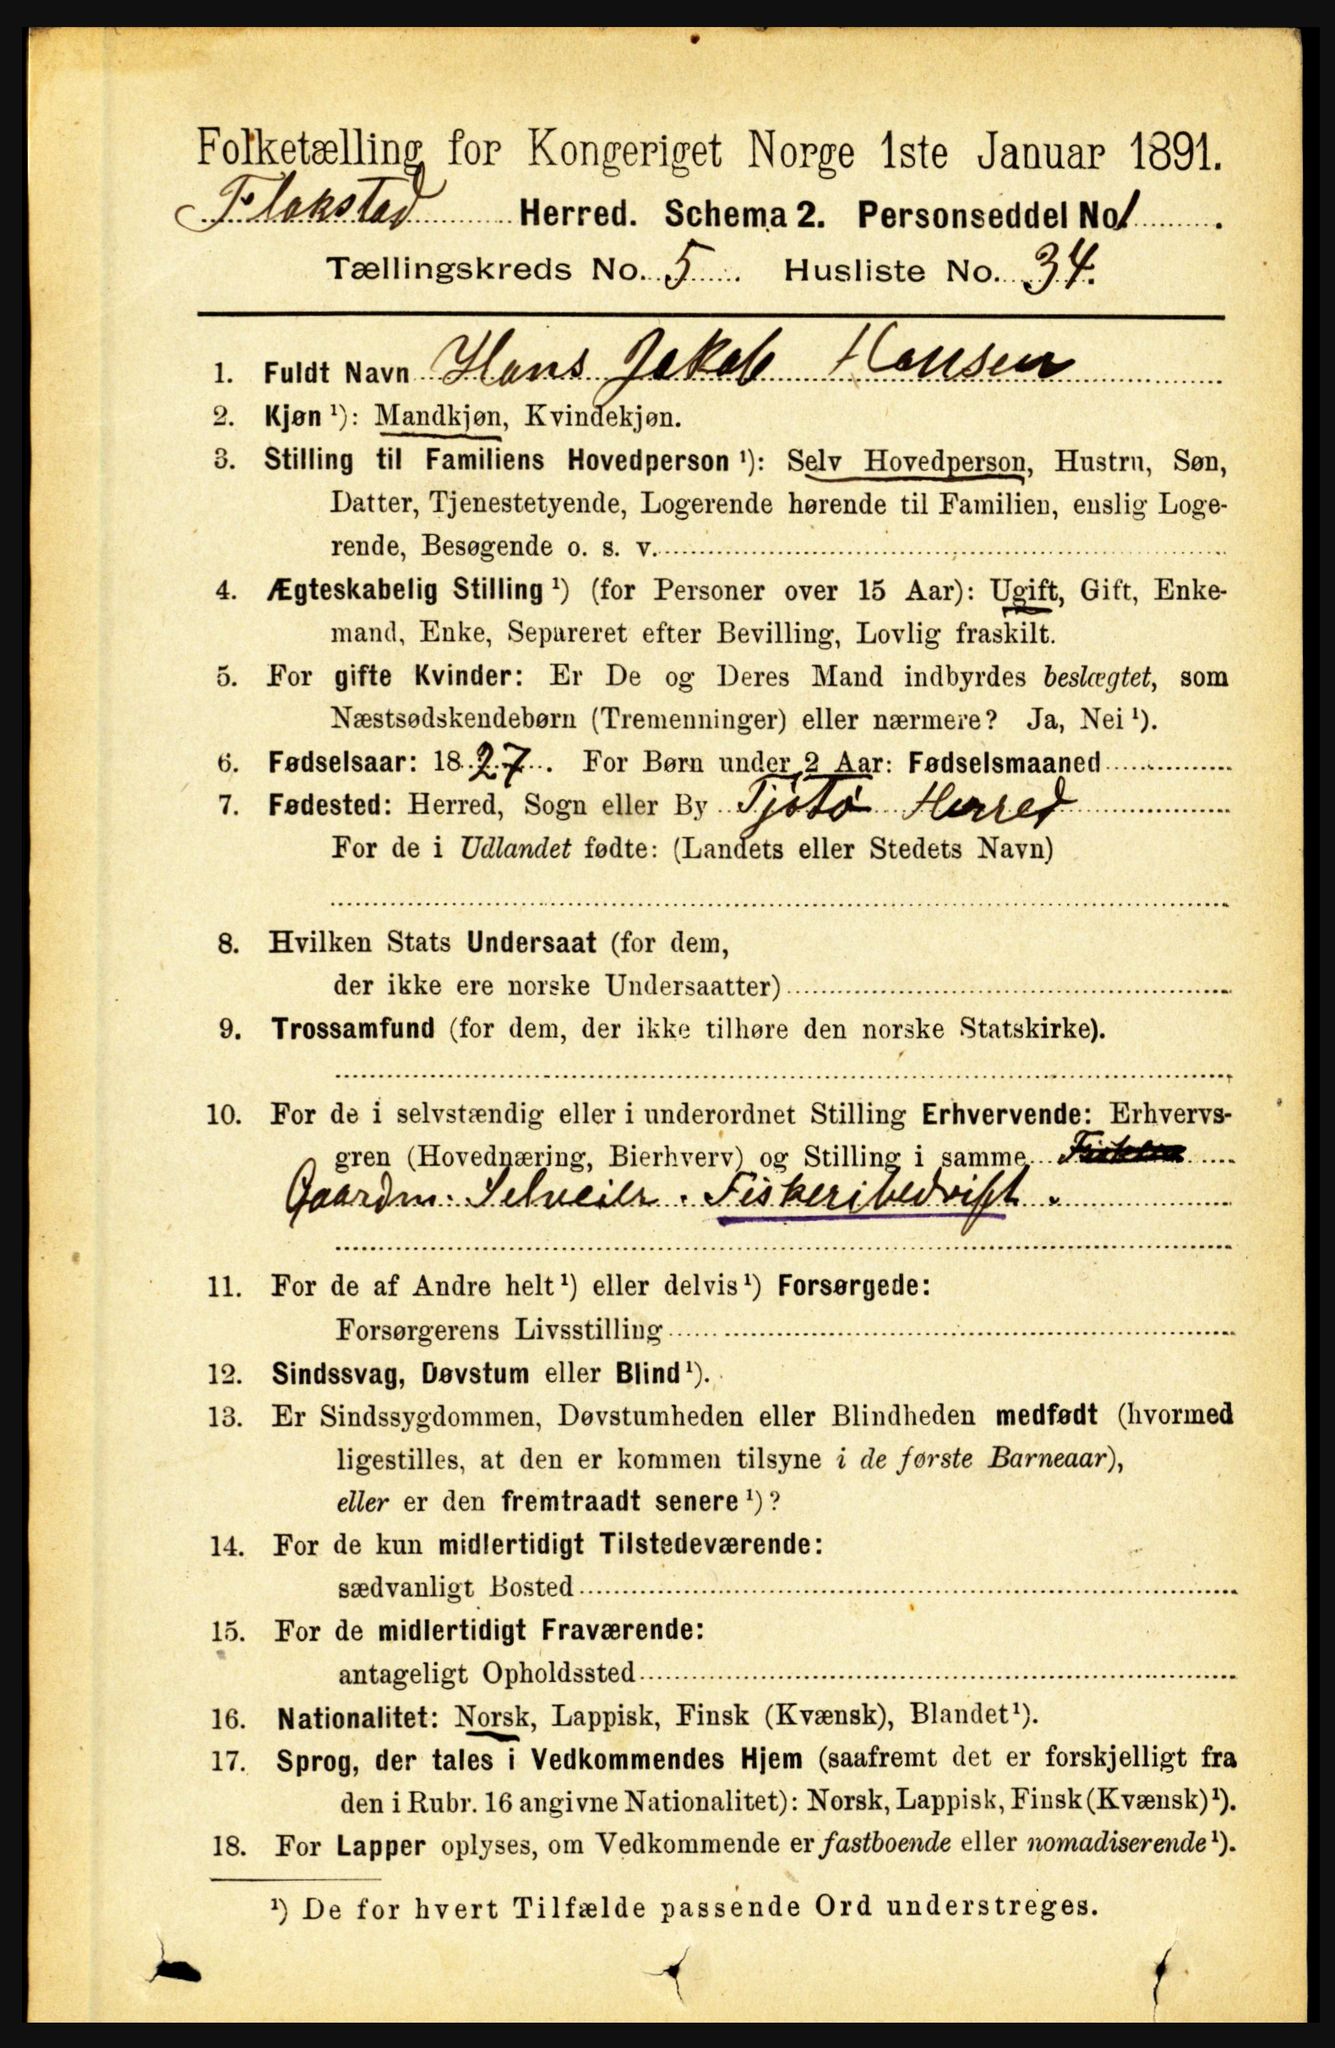 Folketælling for Kongeriget Norge 1ste Januar 1891.
Flakstad Herred. Schema 2. Personseddel No 1.
Tællingskreds No. 5. Husliste No. 34.
1. Fuldt Navn Hans Jakob Hansen
2. Kjøn ¹): Mandkjøn, Kvindekjøn.
3. Stilling til Familiens Hovedperson ¹): Selv Hovedperson, Hustru, Søn,
Datter, Tjenestetyende, Logerende hørende til Familien, enslig Loge-
rende, Besøgende o. s. v.
4. Ægteskabelig Stilling ¹) (for Personer over 15 Aar): Ugift, Gift, Enke-
mand, Enke, Separeret efter Bevilling, Lovlig fraskilt.
5. For gifte Kvinder: Er De og Deres Mand indbyrdes beslægtet, som
Næstsødskendebørn (Tremenninger) eller nærmere? Ja, Nei ¹).
6. Fødselsaar: 1827. For Børn under 2 Aar: Fødselsmaaned
7. Fødested: Herred, Sogn eller By Tjøtø Herred
For de i Udlandet fødte: (Landets eller Stedets Navn)
8. Hvilken Stats Undersaat (for dem,
der ikke ere norske Undersaatter)
9. Trossamfund (for dem, der ikke tilhøre den norske Statskirke).
10. For de i selvstændig eller i underordnet Stilling Erhvervende: Erhvervs-
gren (Hovednæring, Bierhverv) og Stilling i samme
Gaardm. Selveier. Fiskeribedrift.
11. For de af Andre helt ¹) eller delvis ¹) Forsørgede:
Forsørgerens Livsstilling
12. Sindssvag, Døvstum eller Blind ¹).
13. Er Sindssygdommen, Døvstumheden eller Blindheden medfødt (hvormed
ligestilles, at den er kommen tilsyne i de første Barneaar),
eller er den fremtraadt senere ¹)?
14. For de kun midlertidigt Tilstedeværende:
sædvanligt Bosted
15. For de midlertidigt Fraværende:
antageligt Opholdssted
16. Nationalitet: Norsk, Lappisk, Finsk (Kvænsk), Blandet ¹).
17. Sprog, der tales i Vedkommendes Hjem (saafremt det er forskjelligt fra
den i Rubr. 16 angivne Nationalitet): Norsk, Lappisk, Finsk (Kvænsk) ¹).
18. For Lapper oplyses, om Vedkommende er fastboende eller nomadiserende ¹).
¹) De for hvert Tilfælde passende Ord understreges.